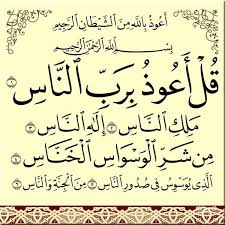 أَعُوذُ بِاللَّهِ مِنَ الشَّيْطَانِ الرَّجِيمِ
بِسْمِ اللَّهِ الرَّحْمَٰنِ الرَّحِيمِ
قُلْ أَعُوذُ بِرَبِّ ٱلنَّاسِ ١
مَلِكِ ٱلنَّاسِ ٢ إِلَٰهِ ٱلنَّاسِ ٣
مِن شَرِّ ٱلْوَسْوَاسِ ٱلْخَنَّاسِ ٤
ٱلَّذِى يُوَسْوِسُ فِى صُدُورِ ٱلنَّاسِ ٥ مِنَ ٱلْجِنَّةِ وَٱلنَّاسِ ٦